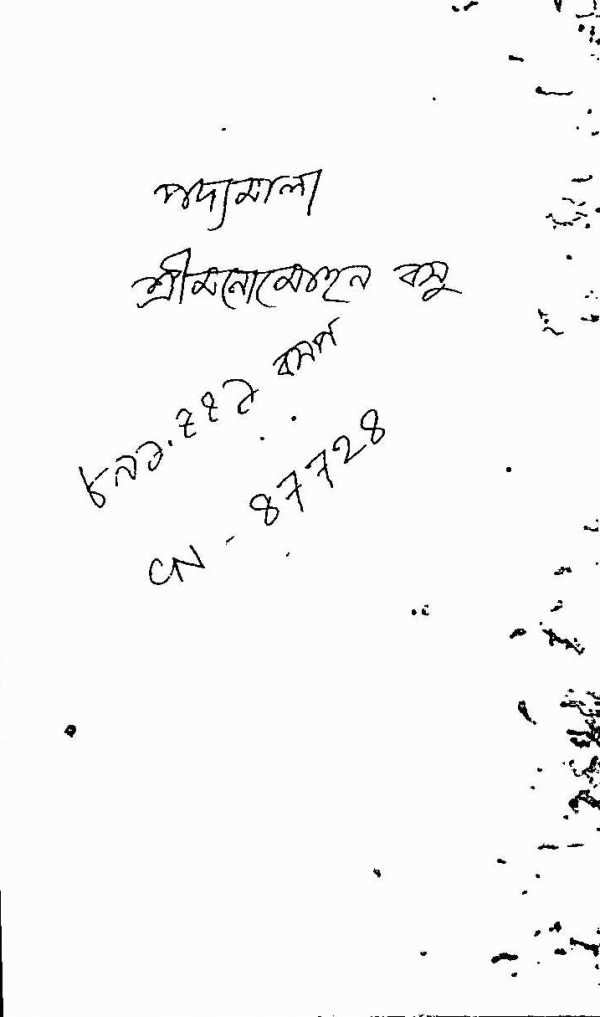 পদ্যমালা
শ্রীমনোমোহন বসু
৮৯১.৭৭১ বসপ
CN - 87728